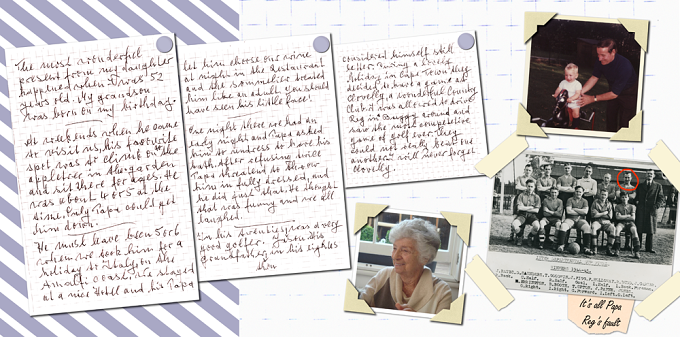 The most wonderful
present from my daughter
happened when I was 52
years old. My grandson
was born on my birthday.
At weekends when he came
to visit us, his favourite
spot was to climb on the
appletree in the garden
and sit there for ages. He
was about 4 or 5 at the
time. Only Papa could get
him down.
He must have been 5 or 6
when we took him for a
holiday to Italy on the
Amalfi coast. We stayed
at a nice Hotel and his Papa
let him choose our wine
at night in the Restaurant
and the sommelier treated
him like an adult. You should
have seen his little face!
One night there we had an
early night and Papa asked
him to undress to have his
bath. After refusing twice
Papa threatened to throw
him in fully dressed, and
he did just that. He thought
that was funny and we all
laughed.
In his twenties was a very
good golfer. Yet his
grandfather in his eighties
considered himself still
better. During a
holiday in Cape Town they
decided to have a game at
Clovelly, a wonderful Country
Club. I was allowed to drive
Reg in Buggy around and
saw the most competitive
game of golf ever. They
could not really beat one
another. I will never forget
Clovelly.
It's all Papa
Reg's fault